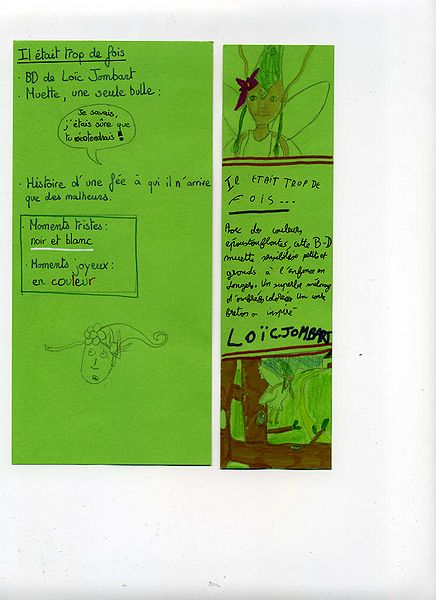 Il était trop de fois
· BD de Loïc Jombart
· Muette, une seule bulle :
Je savais,
j'étais sûre que
tu m'entendrais !
· Histoire d'une fée à qui il n'arrive
que des malheurs.
· Moments tristes :
noir et blanc
· Moments joyeux :
en couleur
IL ETAIT TROP DE
FOIS...
Avec des couleurs
époustouflantes, cette B-D
muette petits et
grands à l'enfance en
Un superbe mélange
Un conte
breton a inspiré
LOÏC JOMBART